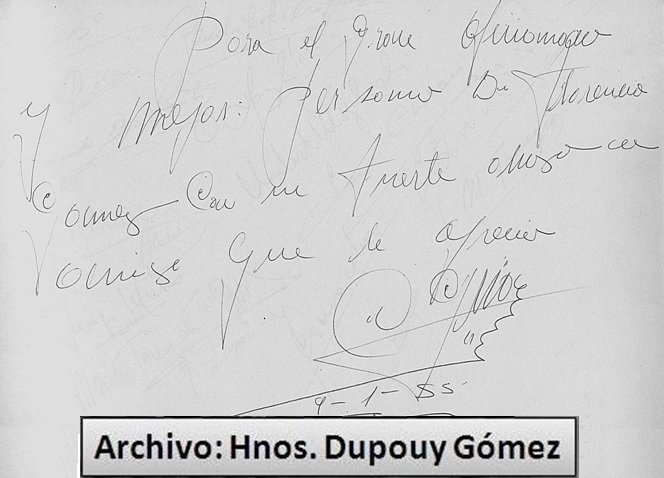 Para el Gran Aficionado
y mejor: persona Dn Florencio
Gomez Con un fuerte abrazo
amigo que le aprecia
9-1-55
Archivo: Hnos. Dupouy Gómez